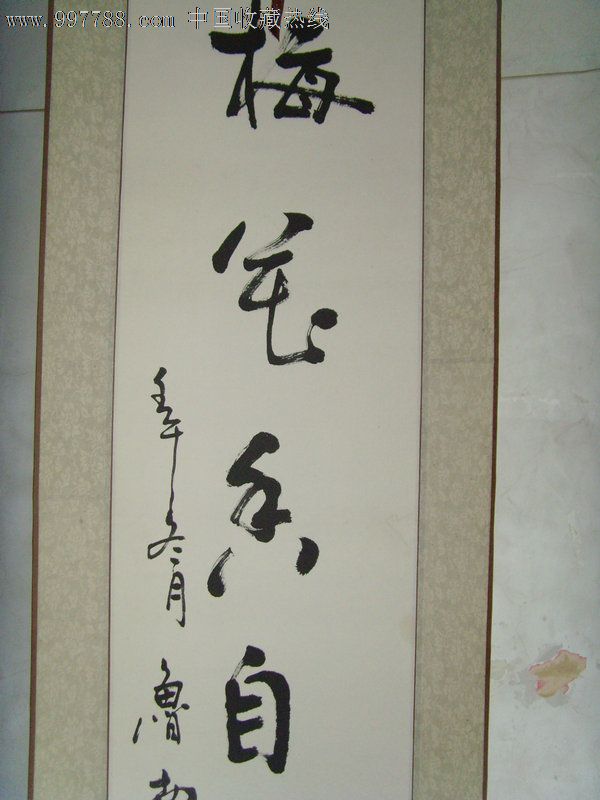 www.997788.com 中国收藏热线
梅花香自
壬午冬月 魯